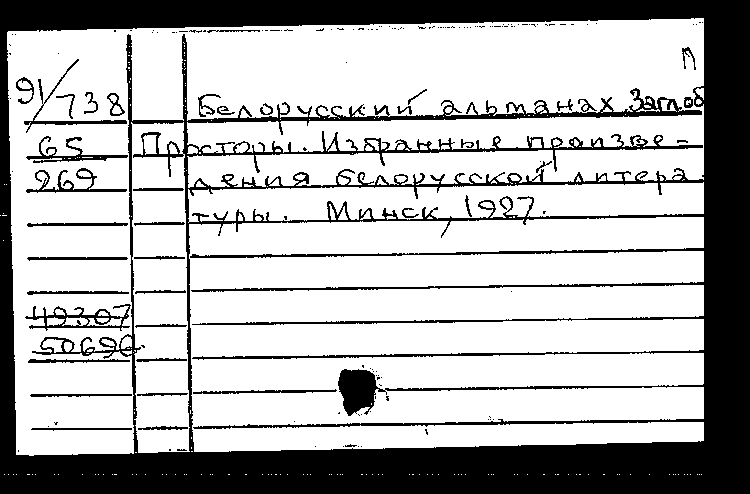 П
91/738 Белорусский альманах Заглоб
65 Просторы. Избранные произве-
269 дения белорусской литера
туры. Минск, 1927.
49307
50696